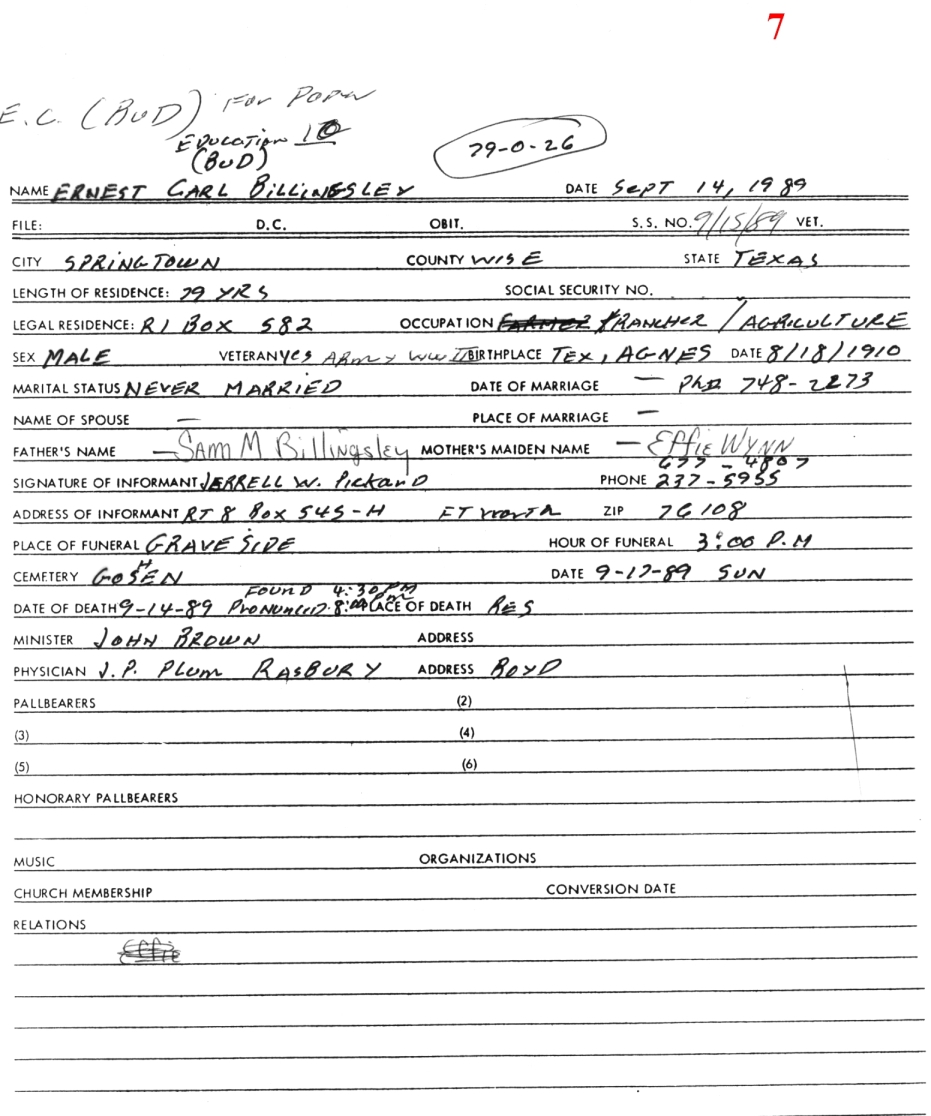 7
E.C. (BUD) FOR PAPER
EDUCATION 10
(BUD)
79-0-26
NAME ERNEST CARL BILLINGSLEY DATE SEPT 14, 1989
FILE: D.C. OBIT. S.S. NO. 9/15/89 VET.
CITY SPRINGTOWN COUNTY WISE STATE TEXAS
LENGTH OF RESIDENCE: 79 YRS SOCIAL SECURITY NO.
LEGAL RESIDENCE: R1 BOX 582 OCCUPATION FARMER / RANCHER / AGRICULTURE
SEX MALE VETERAN YES ARMY WW II BIRTHPLACE TEX, AGNES DATE 8/18/1910
MARITAL STATUS NEVER MARRIED DATE OF MARRIAGE — 748-2273
NAME OF SPOUSE — PLACE OF MARRIAGE —
FATHER'S NAME — SAM M Billingsley MOTHER'S MAIDEN NAME — Effie WYNN
677-4807
SIGNATURE OF INFORMANT JERRELL W. PickarD PHONE 237-5955
ADDRESS OF INFORMANT RT 8 BOX 545-H FT WORTH ZIP 76108
PLACE OF FUNERAL GRAVE SIDE HOUR OF FUNERAL 3:00 P.M
CEMETERY GOSHEN DATE 9-17-89 SUN
FOUND 4:30 PM
DATE OF DEATH 9-14-89 PRONUNCED 8:00 PM PLACE OF DEATH RES
MINISTER JOHN BROWN ADDRESS
PHYSICIAN J.P. PLUM RASBURY ADDRESS BOYD
PALLBEARERS (2)
(3) (4)
(5) (6)
HONORARY PALLBEARERS
MUSIC ORGANIZATIONS
CHURCH MEMBERSHIP CONVERSION DATE
RELATIONS
Effie